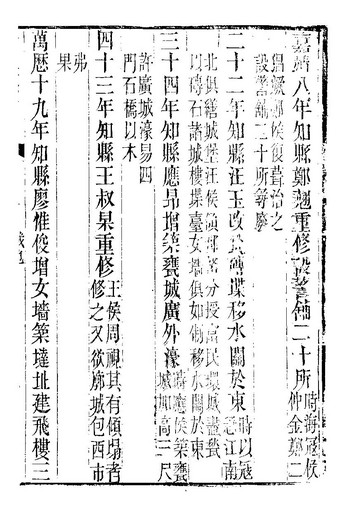 嘉靖八年知縣鄭翹重修設警鋪二十所
時海寇侯
仲金
倡亂鄭侯復葺治之
設警鋪二十所等
二十二年知縣汪玉改磚堞移水關於東
時以寇
江南
北俱繕城堡汪侯領分授富民環城盡甃
以磚石諸城樓堞臺女墻俱如制移水關於東
三十四年知縣應昂增築甕城廣外濠
時應侯築甕
城城高三尺
許廣城濠易四
門石橋以木
四十三年知縣王叔杲重修
王侯周視其有傾塌者
修之又欲廓城包西市
弗
果
萬歷十九年知縣廖惟俊增女墻築墶址建飛樓三